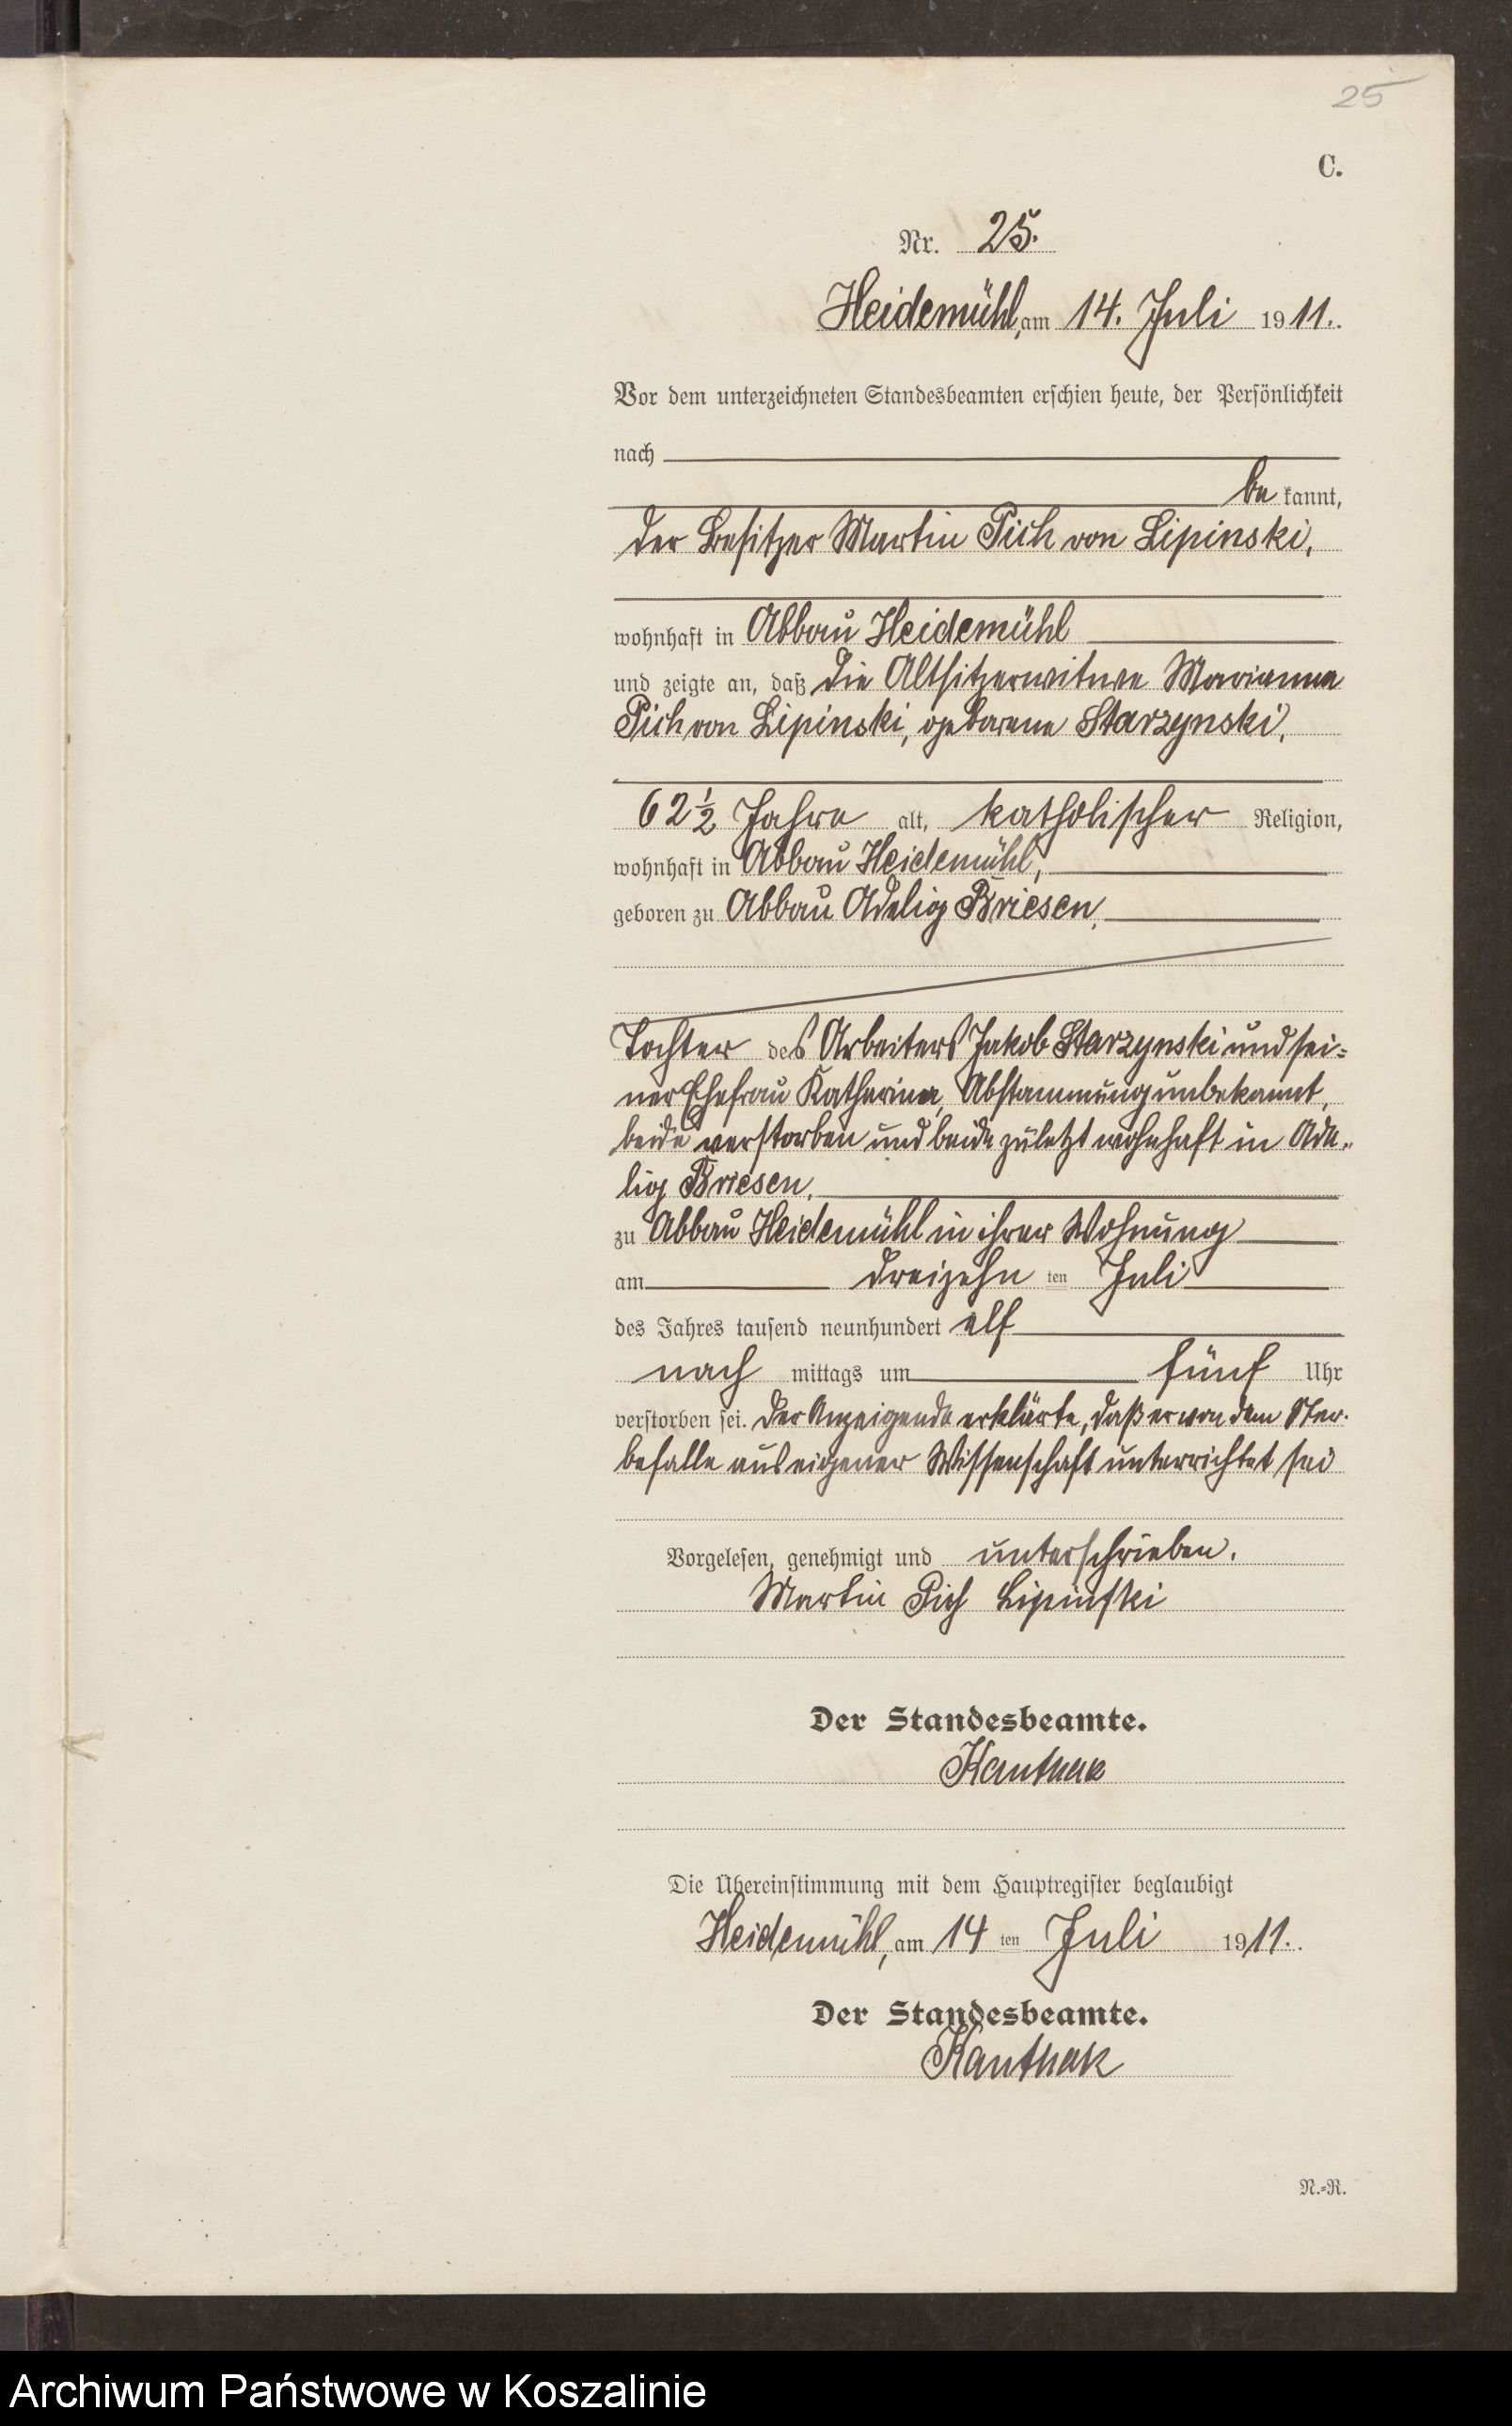 25
C.
Nr. 25.
Heidemühl, am 14. Juli 1911.
Vor dem unterzeichneten Standesbeamten erschien heute, der Persönlichkeit
nach
be kannt,
der Besitzer Martin Pich von Lipinski,
wohnhaft in Abbau Heidemühl
und zeigte an, daß die Altsitzerwitwe Marianna
Pich von Lipinski, geborene Starzynski,
62 ½ Jahre alt, katholischer Religion,
wohnhaft in Abbau Heidemühl,
geboren zu Abbau Adelig Briesen,
Tochter des Arbeiters Jakob Starzynski und sei=
ner Ehefrau Katharina, Abstammung unbekannt,
beide verstorben und beide zuletzt wohnhaft in Ade-
lig Briesen,
zu Abbau Heidemühl in ihrer Wohnung
am dreizehn ten Juli
des Jahres tausend neunhundert elf
nach mittags um fünf Uhr
verstorben sei. Der Anzeigende erklärte, daß er von dem Ster-
befalle aus eigener Wissenschaft unterrichtet sei
Vorgelesen, genehmigt und unterschrieben.
Martin Pich Lipinski
Der Standesbeamte.
Kanthak
Die Übereinstimmung mit dem Hauptregister beglaubigt
Heidemühl, am 14 ten Juli 1911.
Der Standesbeamte.
Kanthak
N.=R.
Archiwum Państwowe w Koszalinie